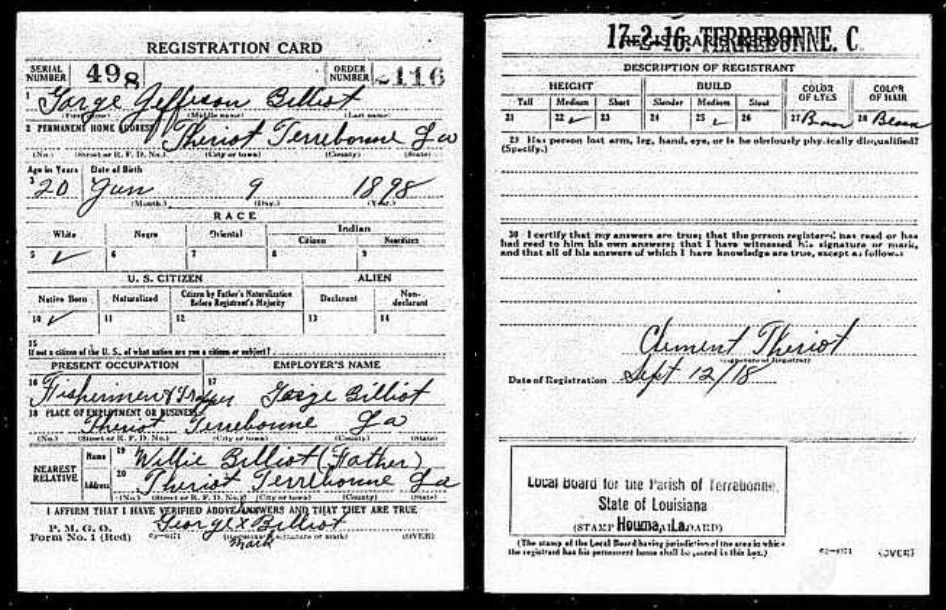 REGISTRATION CARD
SERIAL NUMBER 498 ORDER NUMBER 2116
1 Gorge Jeffison Billiot
(First name) (Middle name) (Last name)
2 PERMANENT HOME ADDRESS:
Theriot Terrebonne La
(No.) (Street or R. F. D. No.) (City or town) (County) (State)
Age in Years Date of Birth
3 20 Jun 9 1898
(Month.) (Day.) (Year.)
RACE
White Negro Oriental Indian
Citizen Noncitizen
5 ✓ 6 7 8 9
U. S. CITIZEN ALIEN
Native Born Naturalized Citizen by Father's Naturalization Before Registrant's Majority Declarant Non-declarant
10 ✓ 11 12 13 14
15
If not a citizen of the U. S., of what nation are you a citizen or subject?
PRESENT OCCUPATION EMPLOYER'S NAME
16 Fishermen & 17 Gorge Billiot
18 PLACE OF EMPLOYMENT OR BUSINESS:
Theriot Terrebonne La
(No.) (Street or R. F. D. No.) (City or town) (County) (State)
NEAREST RELATIVE
Name 19 Willie Billiot (Father)
Address 20 Theriot Terrebonne La
(No.) (Street or R. F. D. No.) (City or town) (County) (State)
I AFFIRM THAT I HAVE VERIFIED ABOVE ANSWERS AND THAT THEY ARE TRUE
P. M. G. O.
Form No. 1 (Red) George x Billiot
mark
(Registrant's signature or mark) (OVER)
17-2-16. TERREBONNE. C
DESCRIPTION OF REGISTRANT
HEIGHT BUILD COLOR OF EYES COLOR OF HAIR
Tall Medium Short Slender Medium Stout
21 22 ✓ 23 24 25 ✓ 26 27 28
29 Has person lost arm, leg, hand, eye, or is he obviously physically disqualified?
(Specify.)
30 I certify that my answers are true; that the person registered has read or has
had read to him his own answers; that I have witnessed his signature or mark,
and that all of his answers of which I have knowledge are true, except as follows:
Clement Theriot
(Signature of Registrar)
Date of Registration Sept 12/18
Local Board for the Parish of Terrebonne,
State of Louisiana
Houma, La.
(The stamp of the Local Board having jurisdiction of the area in which
the registrant has his permanent home shall be placed in this box.)
(OVER)